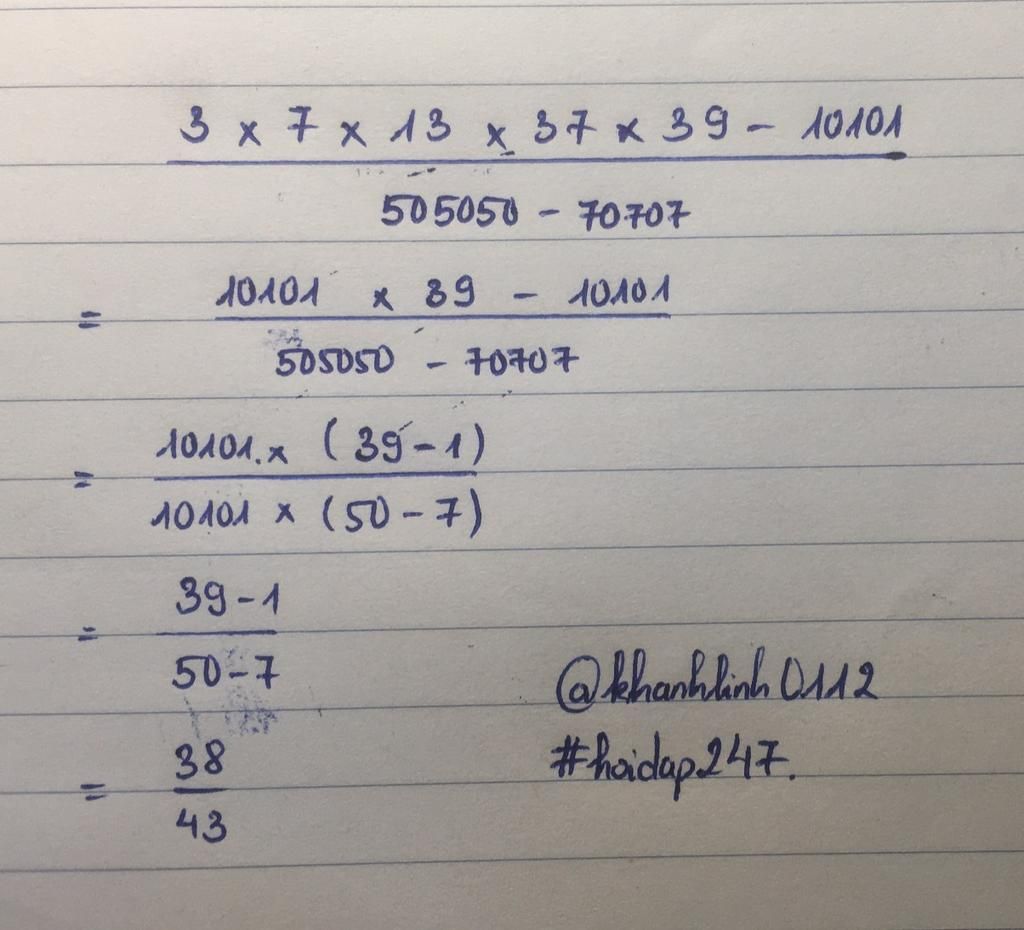 3 × 7 × 13 × 37 × 39 - 10101
505050 - 70707
= 10101 × 39 - 10101
505050 - 70707
= 10101 . × ( 39 - 1 )
10101 × ( 50 - 7 )
= 39 - 1
50 - 7
= 38
43
@khanhlinh0112
#hoidap247.